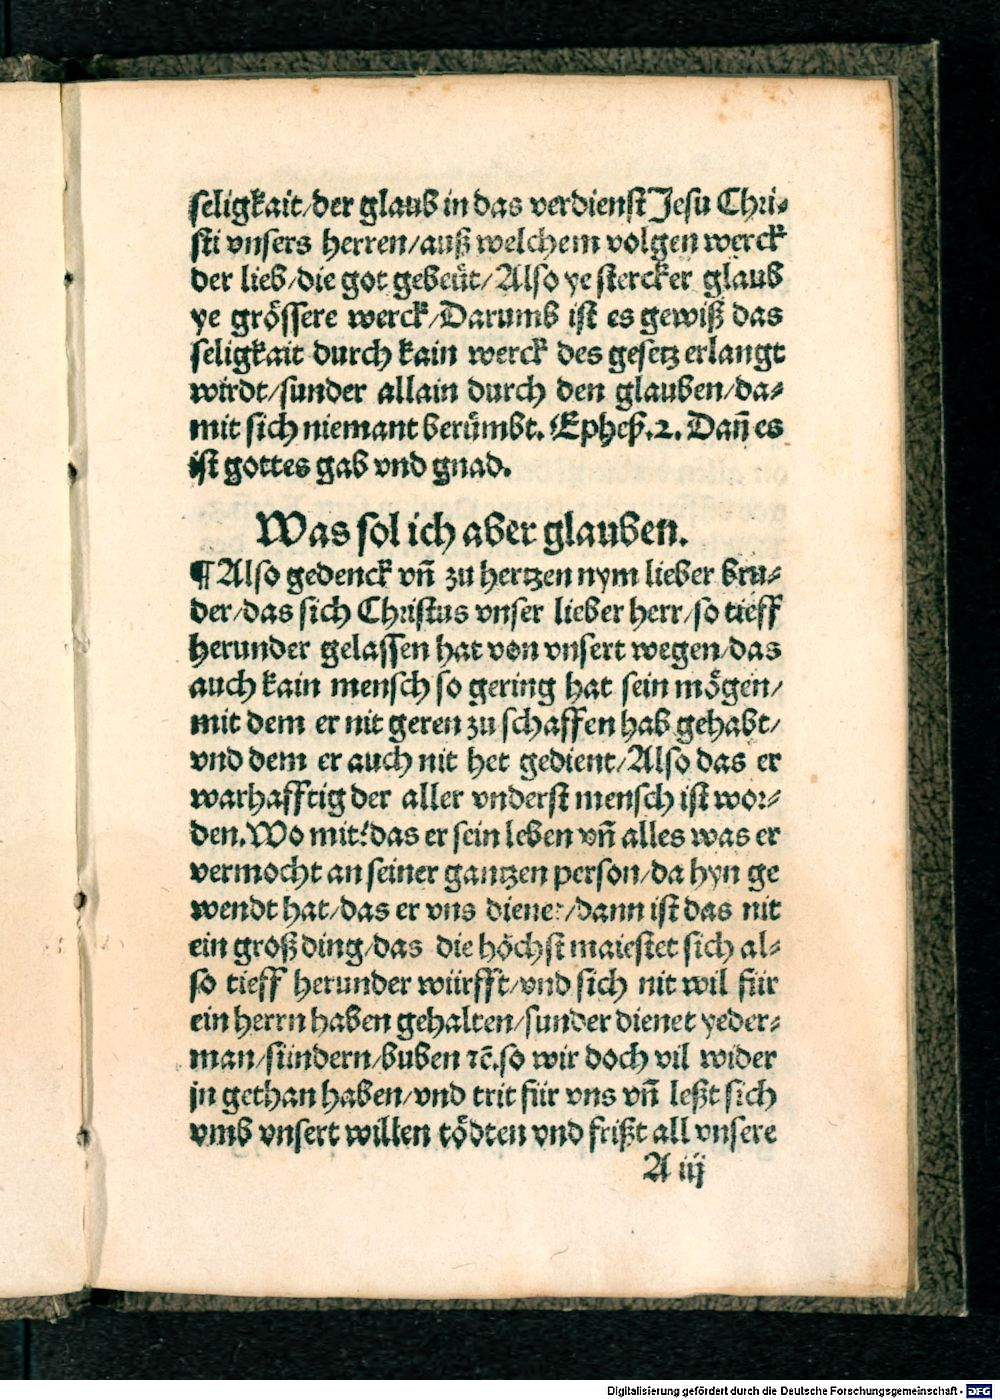 seligkait/der glaub in das verdienst Jesu Chri⸗
sti vnsers herren/auß welchem volgen werck
der lieb/die got gebeüt/Also ye stercker glaub
ye grössere werck/Darumb ist es gewiß das
seligkait durch kain werck des gesetz erlangt
wirdt/sunder allain durch den glauben/da⸗
mit sich niemant berümbt. Ephes.2. Dañ es
ist gottes gab vnd gnad.
Was sol ich aber glauben.
¶ Also gedenck vñ zu hertzen nym lieber bru⸗
der/das sich Christus vnser lieber herr/so tieff
herunder gelassen hat von vnsert wegen/das
auch kain mensch so gering hat sein mögen/
mit dem er nit geren zu schaffen hab gehabt/
vnd dem er auch nit het gedient/Also das er
warhafftig der aller vnderst mensch ist wor⸗
den. Wo mit? das er sein leben vñ alles was er
vermocht an seiner gantzen person/da hyn ge
wendt hat/das er vns diene:/dann ist das nit
ein groß ding/das die höchst maiestet sich al⸗
so tieff herunder würfft/vnd sich nit wil für
ein herrn haben gehalten/sunder dienet yeder⸗
man/sündern/buben ⁊c̄.so wir doch vil wider
jn gethan haben/vnd trit für vns vñ leßt sich
vmb vnsert willen tödten vnd frißt all vnsere
A iij
Digitalisierung gefördert durch die Deutsche Forschungsgemeinschaft - DFG